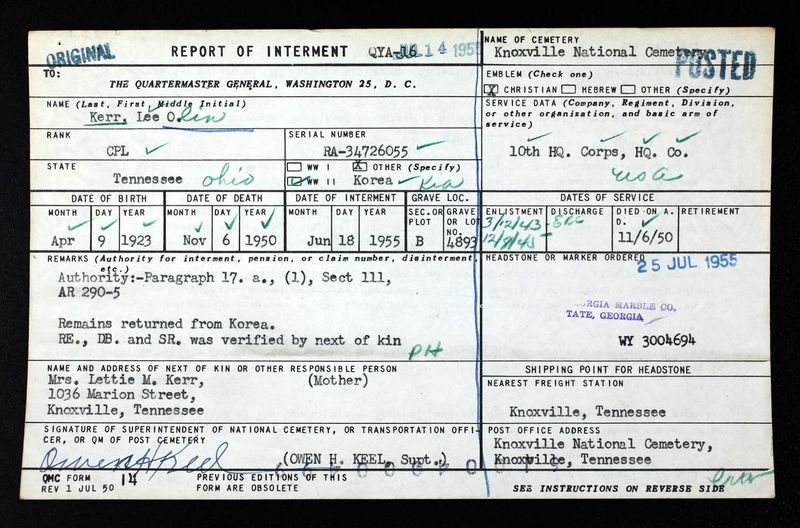 ORIGINAL
REPORT OF INTERMENT QYA-16 JUL 14 1955
TO:
THE QUARTERMASTER GENERAL, WASHINGTON 25, D. C.
NAME (Last, First, Middle Initial)
Kerr, Lee O.
RANK
CPL
SERIAL NUMBER
RA-34726055
STATE
Tennessee Ohio
WW I X OTHER (Specify)
WW II Korea KIA
DATE OF BIRTH
MONTH DAY YEAR
Apr 9 1923
DATE OF DEATH
MONTH DAY YEAR
Nov 6 1950
DATE OF INTERMENT
MONTH DAY YEAR
Jun 18 1955
GRAVE LOC.
SEC. OR PLOT
GRAVE OR LOT NO.
B 4893
NAME OF CEMETERY
Knoxville National Cemetery
POSTED
EMBLEM (Check one)
X CHRISTIAN HEBREW OTHER (Specify)
SERVICE DATA (Company, Regiment, Division,
or other organization, and basic arm of
service)
10th HQ. Corps, HQ. Co.
USA
DATES OF SERVICE
ENLISTMENT DISCHARGE DIED ON A. D. RETIREMENT
3/12/43 ERC
11/6/50
REMARKS (Authority for interment, pension, or claim number, disinterment,
etc.)
Authority:-Paragraph 17. a., (1), Sect 111,
AR 290-5
Remains returned from Korea.
RE., DB. and SR. was verified by next of kin
PH
HEADSTONE OR MARKER ORDERED
25 JUL 1955
GEORGIA MARBLE CO.
TATE, GEORGIA
WY 3004694
NAME AND ADDRESS OF NEXT OF KIN OR OTHER RESPONSIBLE PERSON
Mrs. Lettie M. Kerr, (Mother)
1036 Marion Street,
Knoxville, Tennessee
SHIPPING POINT FOR HEADSTONE
NEAREST FREIGHT STATION
Knoxville, Tennessee
SIGNATURE OF SUPERINTENDENT OF NATIONAL CEMETERY, OR TRANSPORTATION OFFI-
CER, OR QM OF POST CEMETERY
Owen H Keel (OWEN H. KEEL, Supt.)
POST OFFICE ADDRESS
Knoxville National Cemetery,
Knoxville, Tennessee
QMC FORM 14
REV 1 JUL 50
PREVIOUS EDITIONS OF THIS
FORM ARE OBSOLETE
SEE INSTRUCTIONS ON REVERSE SIDE